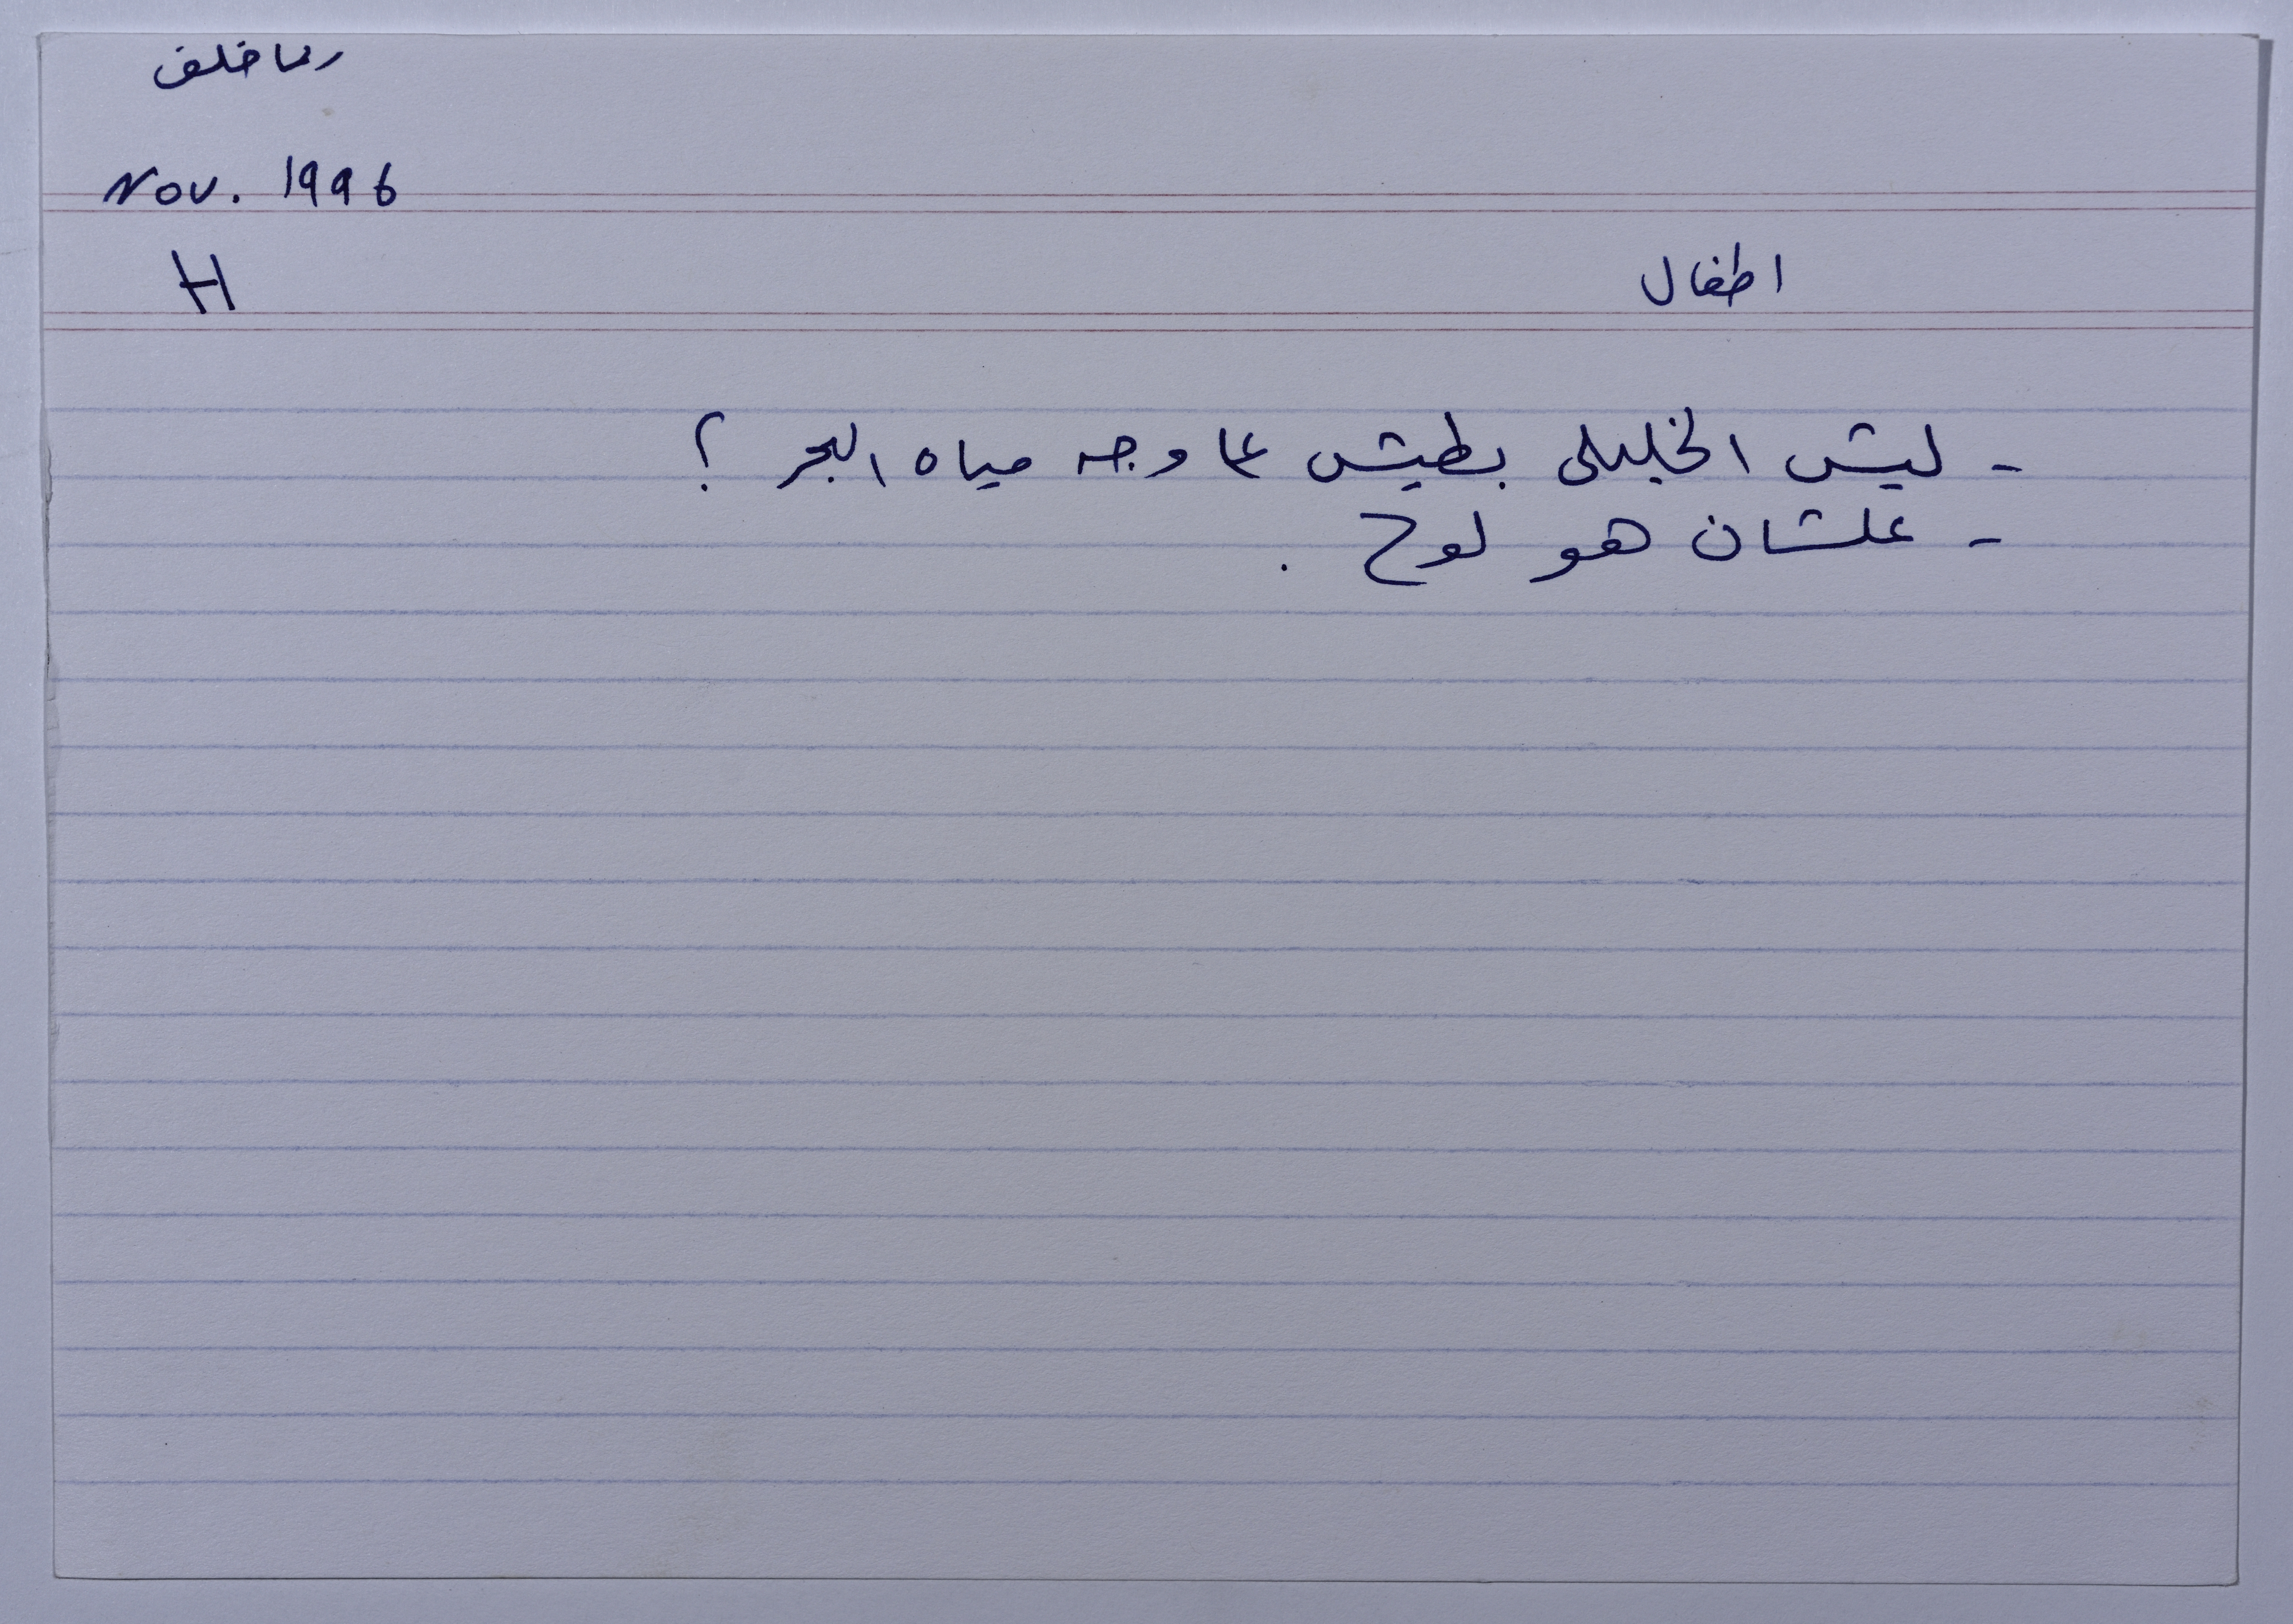 ريما خلف
Nov. 1996
H
اطفال
- ليش الخليلي بطيش عا وجه مياه البحر ؟
- علشان هو لوح .